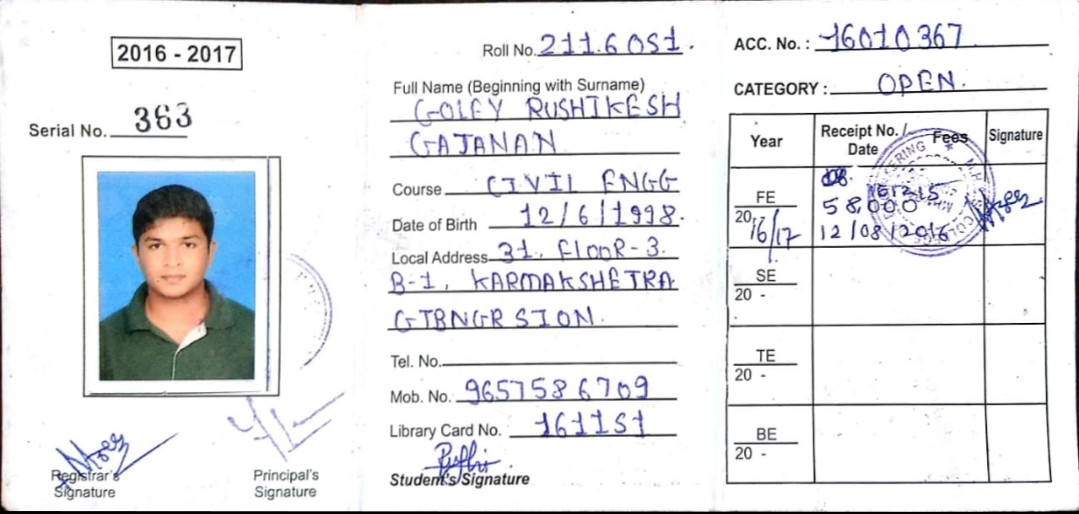 2016 - 2017
Serial No. 363
Registrar's
Signature
Principal's
Signature
Roll No. 211.6 OS1.
Full Name (Beginning with Surname)
GOLEY RUSHIKESH
GAJANAN
Course CIVIL ENGG
Date of Birth 12/6/1998.
Local Address 31, FlOOR-3.
B-1, KARMAKSHETRA
GTBNGR SION.
Tel. No.
Mob. No. 9657586709
Library Card No. 1611S1
Student's Signature
ACC. No. : 16010367
CATEGORY : OPEN.
Year
Receipt No. /
Date
Fees
Signature
FE
2016/17
58,000
12/08/2016
SE
20 -
TE
20 -
BE
20 -